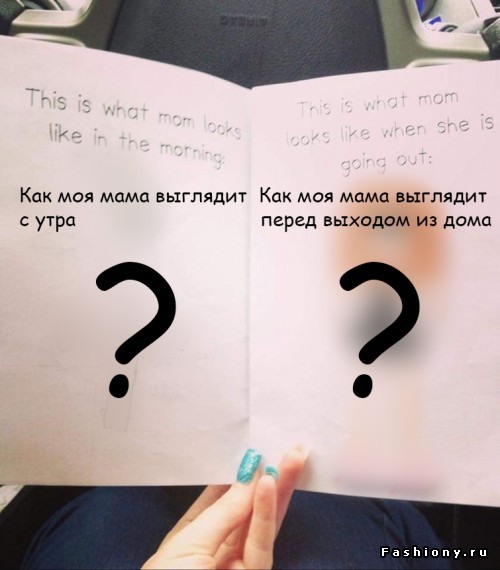 AIRBAG
This is what mom looks
like in the morning:
This is what mom
looks like when she is
going out:
Как моя мама выглядит
с утра
Как моя мама выглядит
перед выходом из дома
?
?
Fashiony.ru